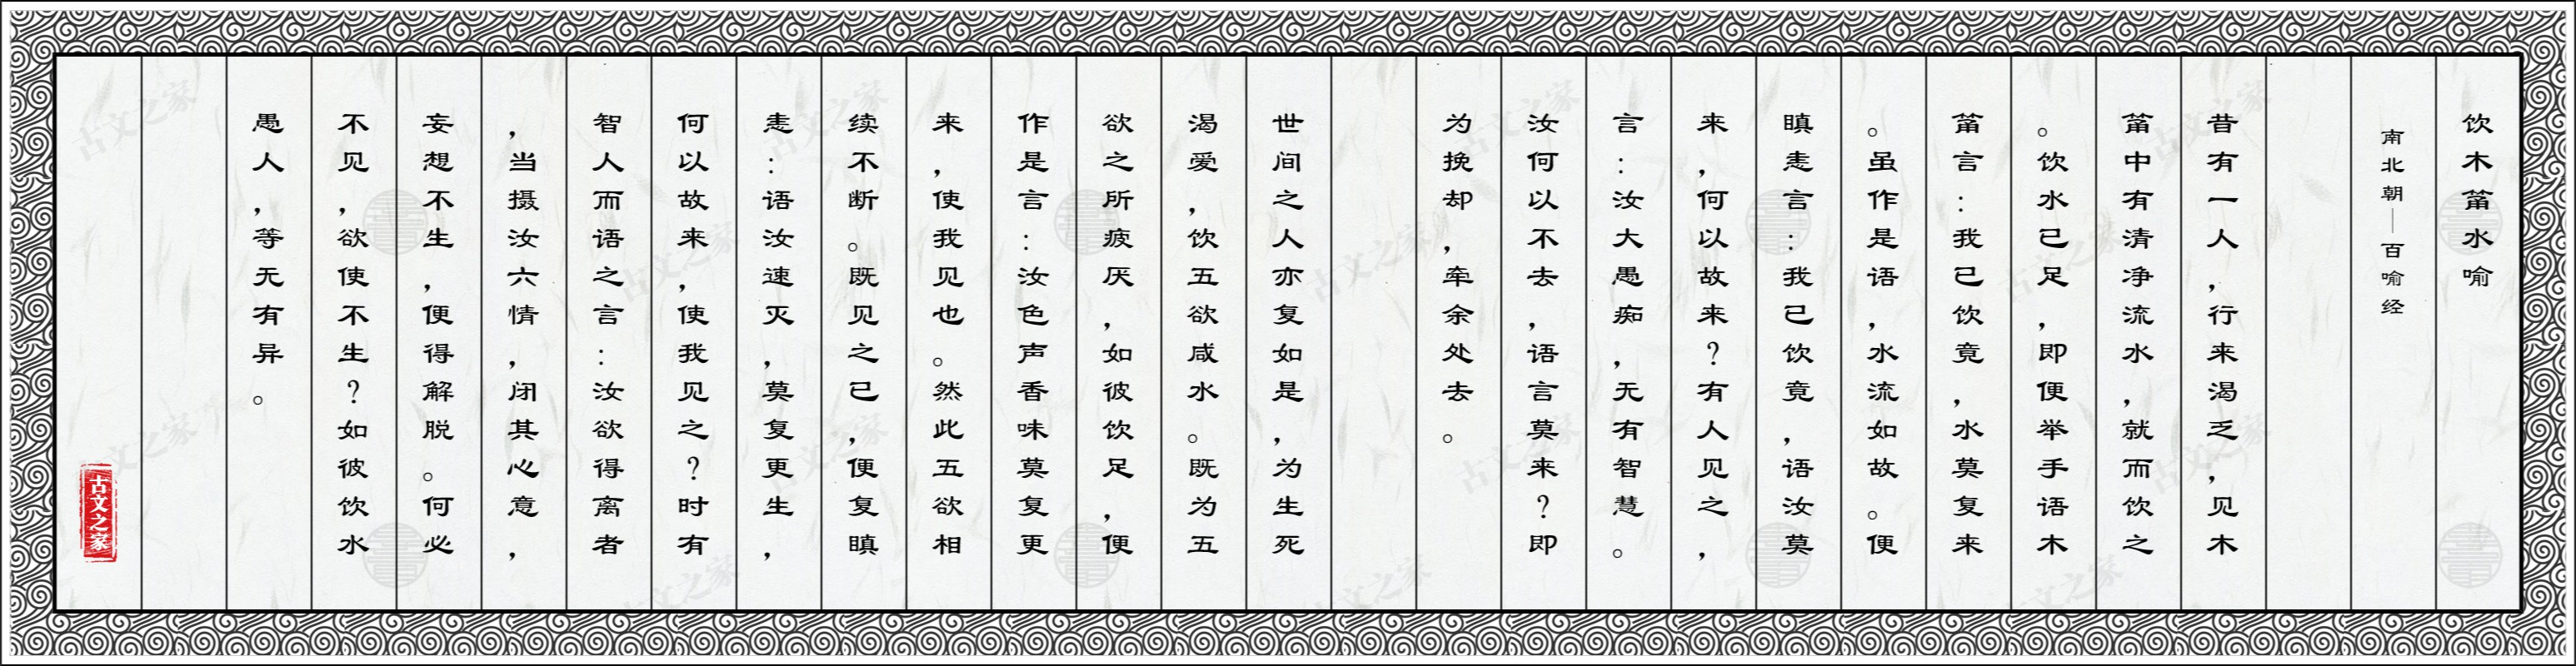 饮木筩水喻
南北朝—百喻经
昔有一人，行来渴乏，见木
筩中有清净流水，就而饮之
。饮水已足，即便举手语木
筩言：我已饮竟，水莫复来
。虽作是语，水流如故。便
瞋恚言：我已饮竟，语汝莫
来，何以故来？有人见之，
言：汝大愚痴，无有智慧。
汝何以不去，语言莫来？即
为挽却，牵余处去。
世间之人亦复如是，为生死
渴爱，饮五欲咸水。既为五
欲之所疲厌，如彼饮足，便
作是言：汝色声香味莫复更
来，使我见也。然此五欲相
续不断。既见之已，便复瞋
恚：语汝速灭，莫复更生，
何以故来，使我见之？时有
智人而语之言：汝欲得离者
，当摄汝六情，闭其心意，
妄想不生，便得解脱。何必
不见，欲使不生？如彼饮水
愚人，等无有异。
古文之家